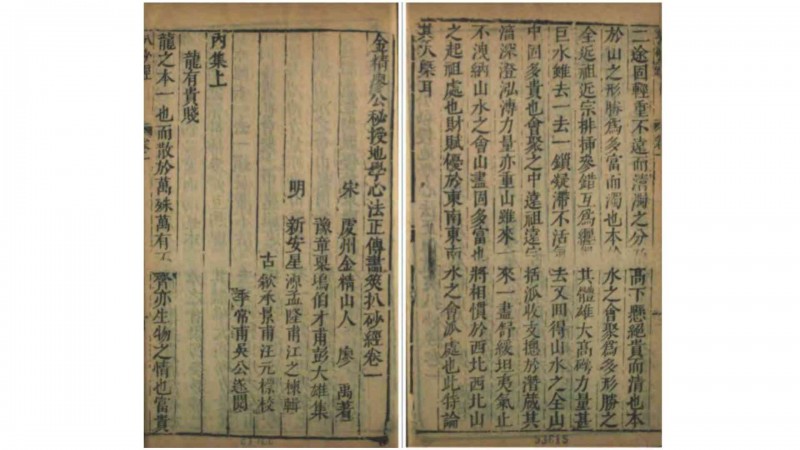 金精廖公秘授地學心法正傳畫筴扒砂經卷一
宋 虔州金精山人 廖禹著
豫章栗塢伯才甫彭大雄集
明 新安星源孟隆甫江之棟輯
古歙承景甫汪元標校
季常甫吳公遜閱
內集上
龍有貴賤
龍之本一也而散於萬殊萬有不齊亦生物之情也富貴
二途固輕重不遠而清濁之分高下懸絕貴而清也本
於山之形勝為多富而濁也本水之會聚為多形勝之
全近祖近宗排挿參錯互為纒其體雄大高力量甚
巨水雖去一去一鎖凝滯不活去又囬得山水之全山
中固多貴也會聚之中遠祖遠宗括派收支摠於潛蔵其
深澄泓力量亦重山雖來一來一盡舒緩坦夷氣止
不洩納山水之會山盡固多富也將相慣於西北西北山
之起祖處也財賦優於東南東南水之會派處也此特論
其大槩耳